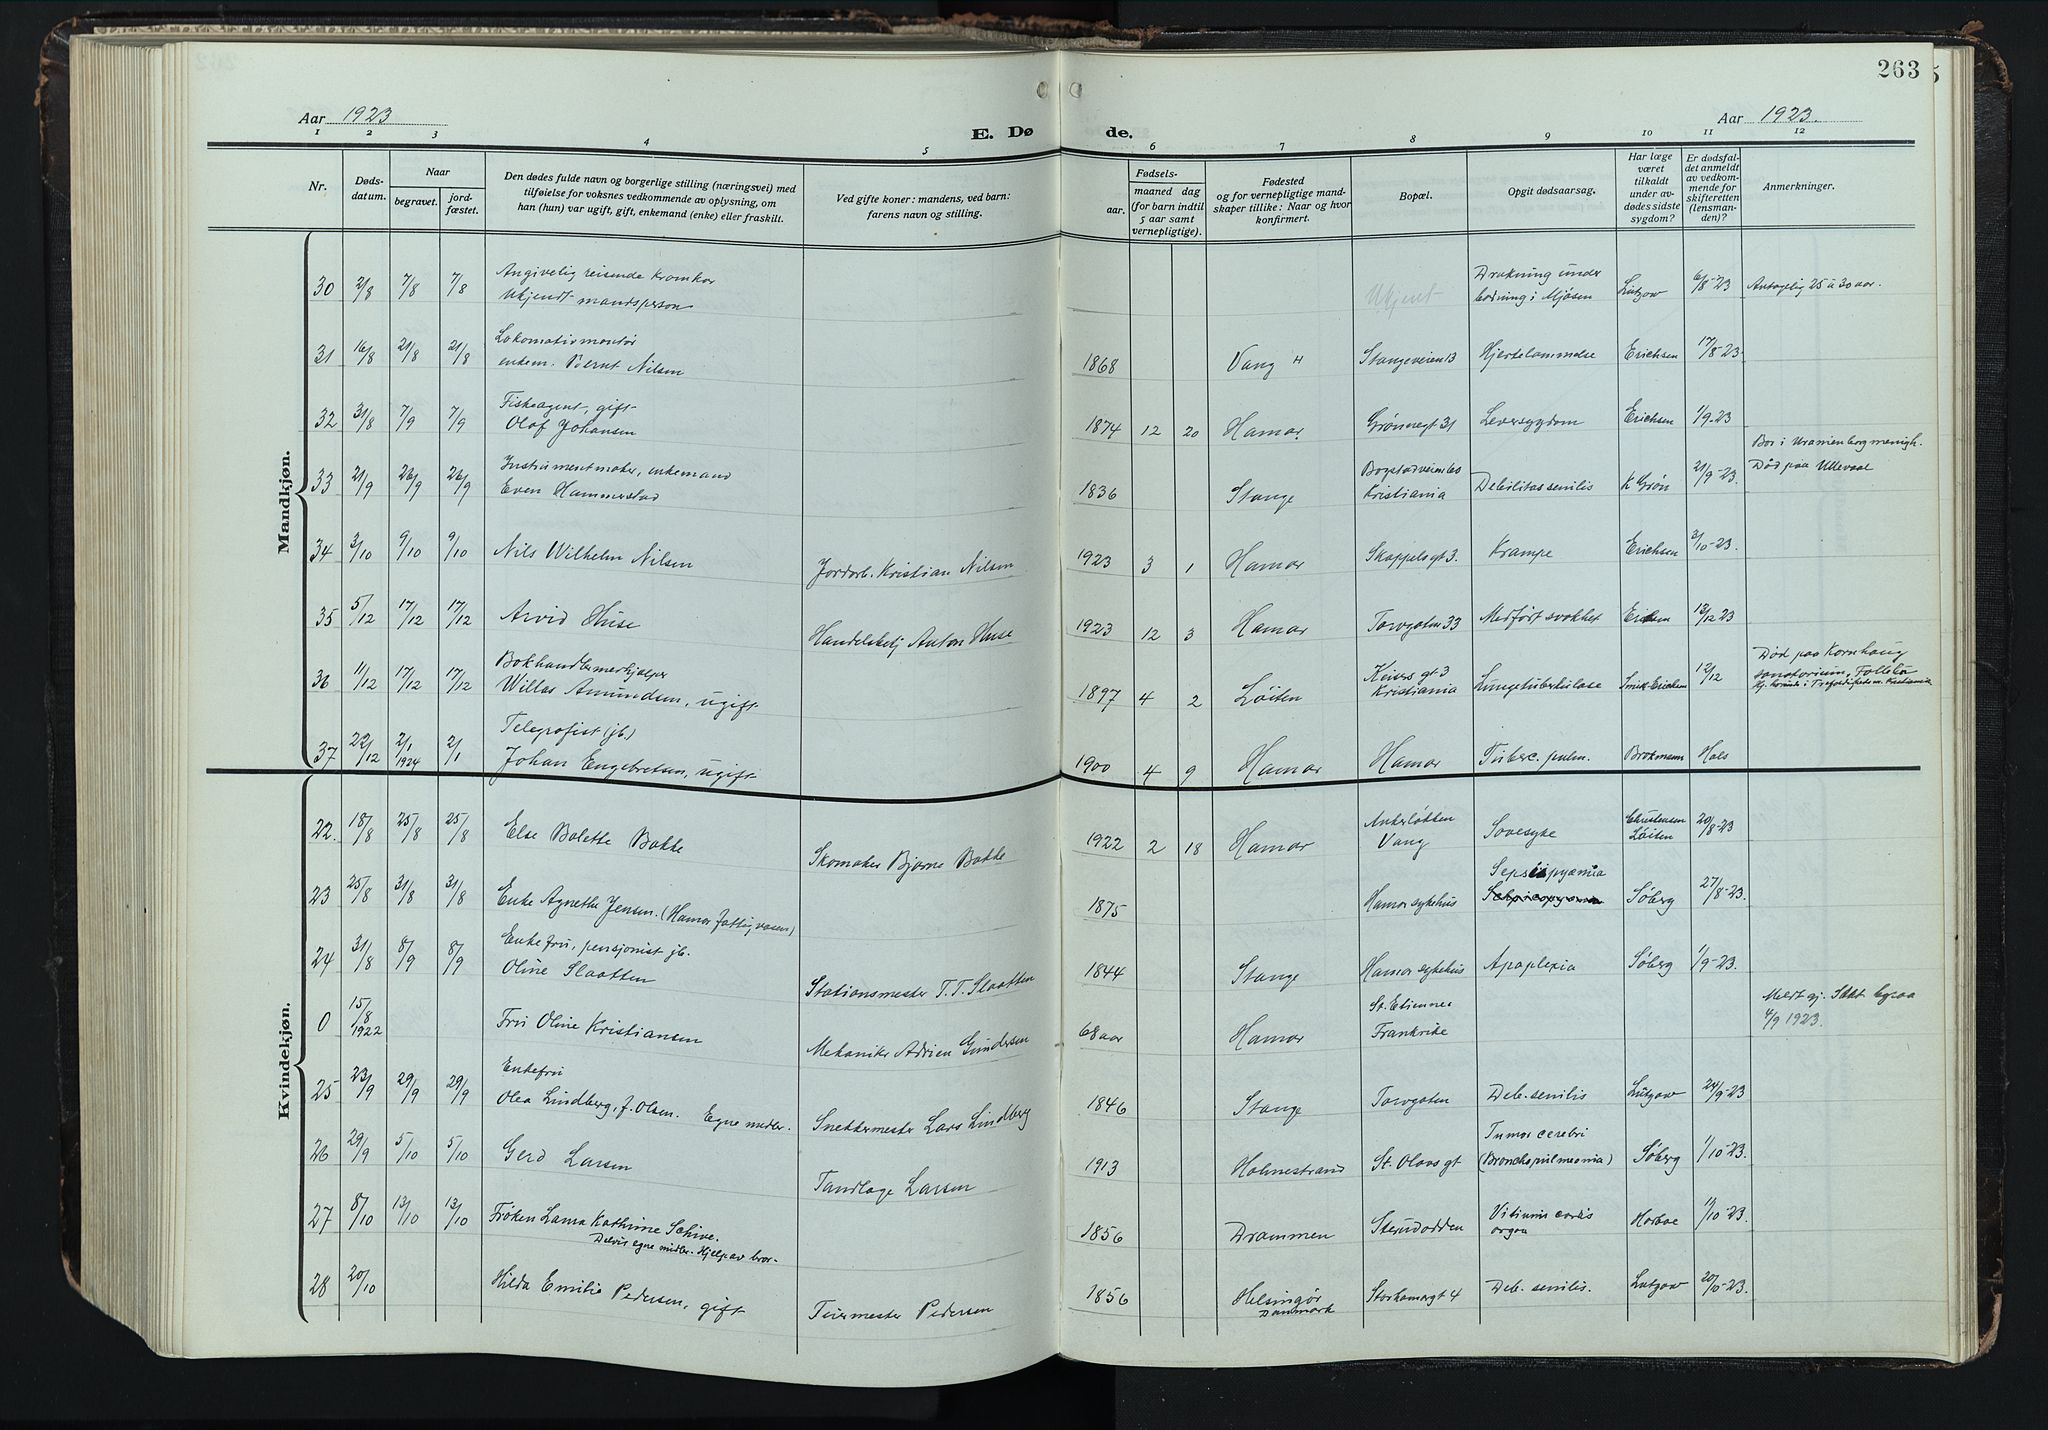 263
Aar 1923
E. Døde.
Aar 1923.
1 2 3 4 5 6 7 8 9 10 11 12
Nr.
Døds-
datum.
Naar
begravet.
jord-
fæstet.
Den dødes fulde navn og borgerlige stilling (næringsvei) med
tilføielse for voksnes vedkommende av oplysning, om
han (hun) var ugift, gift, enkemand (enke) eller fraskilt.
Ved gifte koner: mandens, ved barn:
farens navn og stilling.
Fødsels-
aar.
maaned dag
(for barn indtil
5 aar samt
vernepligtige).
Fødested
og for vernepligtige mand-
skaper tillike: Naar og hvor
konfirmert.
Bopæl.
Opgit dødsaarsag.
Har læge
været
tilkaldt
under av-
dødes sidste
sygdom?
Er dødsfal-
det anmeldt
av vedkom-
mende for
skifteretten
(lensman-
den)?
Anmerkninger.
Mandkjøn.
Angivelig reisende
30 2/8 7/8 7/8 Ukjendt mandsperson Ukjent Drukning under badning i Mjøsen Lützow 6/8-23 Antagelig 25 a 30 aar.
Lokomotivmontør
31 16/8 21/8 21/8 enkem. Bernt Nilsen 1868 Vang H Stangeveien 13 Hjertelammelse Erichsen 17/8-23
Fiskeagent, gift
32 31/8 7/9 7/9 Olaf Johansen 1874 12 20 Hamar Grønnegt 31 Leversygdom Erichsen 1/9-23
Instrumentmaker, enkemand
Bor i Uranienborg menigh.
Død paa Ullevaal
33 21/9 26/9 26/9 Even Hammerstad 1836 Stange Kristiania Debilitas senilis K Grøn 21/9-23
34 3/10 9/10 9/10 Nils Wilhelm Nilsen Jordarb. Kristian Nilsen 1923 3 1 Hamar Skappelsgt 3. Krampe Erichsen 3/10-23.
35 5/12 17/12 17/12 Arvid Huse Handelsbetj Anton Huse 1923 12 3 Hamar Torvgaten 33 Medført svakhet Ericksen 13/12 23
Bokhandlermedhjælper
Død paa Kornhaug
sanatorium, Follebu
36 11/12 17/12 17/12 Willas Amundsen, ugift 1897 4 2 Løiten Keisers gt 3 Kristiania Lungetuberkulose 12/12
Telegrafist (jb.)
37 22/12 2/1 1924 2/1 Johan Engebretsen, ugift 1900 4 9 Hamar Hamar Tuberc. pulm. Brokmann Hols
Kvindekjøn.
22. 18/8 25/8 25/8 Else Bolette Bakke Skomaker Bjarne Bakke 1922 2 18 Hamar Ankerløkken Vang Sovesyke Christensen Løiten 20/8-23
23 25/8 31/8 31/8 Enke Agnethe Jensen. (Hamar fattigvæsen) 1875 Hamar sykehus Sepsispyæmia Søberg 27/8-23.
Enkefru, pensjonist jb.
24 31/8 8/9 8/9 Oline Slaatten Stationsmester T. T. Slaatten 1844 Stange Hamar sykehus Apoplexia Søberg 1/9-23.
0 15/8 1922 Fru Oline Kristiansen Mekaniker Adrien Gundersen 68 aar Hamar St. Etiennes Frankrike Meldt gj. 4/9 1923.
Enkefru
25 23/9 29/9 29/9 Olea Lindberg, f. Olsen. Egne midler. Snekkermester Lars Lindberg 1846 Stange Torvgaten Deb. senilis Lützow 24/9-23
26 29/9 5/10 5/10 Gerd Larsen Tandlæge Larsen 1913 Holmestrand St. Olavs gt Tumor cerebri (Bronchopnevmonia) Søberg 1/10-23.
27 8/10 13/10 13/10 Frøken Laura Kathrine Schive. 1856 Drammen Sterudodden Vitium cordis organ Horboe 11/10-23.
Delvis egne midler. Hjelp av bror.
28 20/10 Hilda Emilie Pedersen, gift Feiermester Pedersen 1856 Helsingør Danmark Storhamargt 4 Deb. senilis. Lützow 20/10-23.